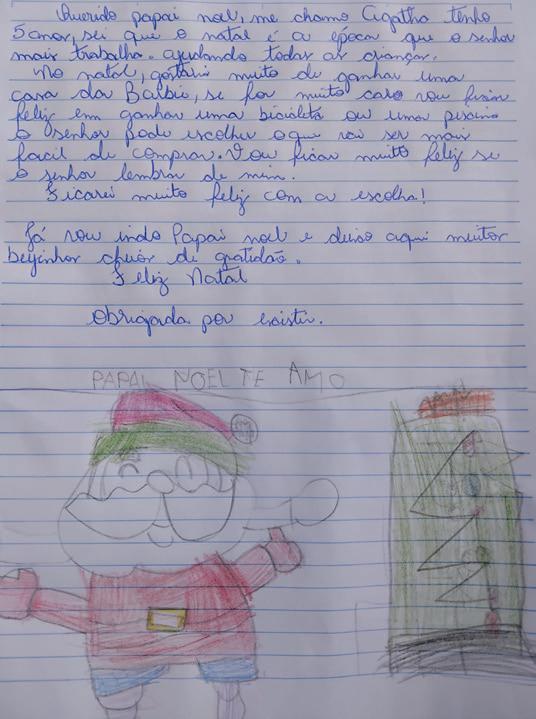 Querido papai noel, me chamo Agatha tenho
5 anos, sei que o natal é a época que o senhor
mais trabalha. ajudando todas as crianças.
No natal, gostaria muito de ganhar uma
casa da Barbie, se for muito caro vou ficar
feliz em ganhar uma bicicleta ou uma piscina
o senhor pode escolher oque vai ser mais
facil de comprar. Vou ficar muito feliz se
o senhor lembrar de mim.
Ficarei muito feliz com a escolha!
Já vou indo Papai noel e deixo aqui muitos
beijinhos cheios de gratidão.
Feliz Natal
Obrigada por existir.
PAPAI NOEL TE AMO